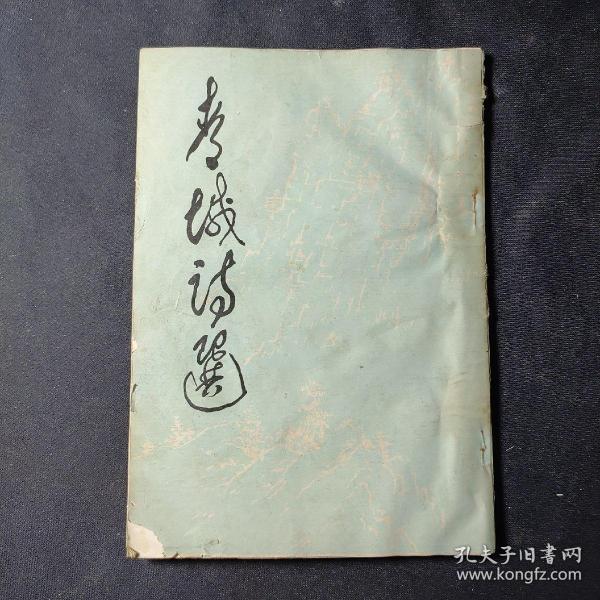 青城詩選
孔夫子旧書网
www.kongfz.com